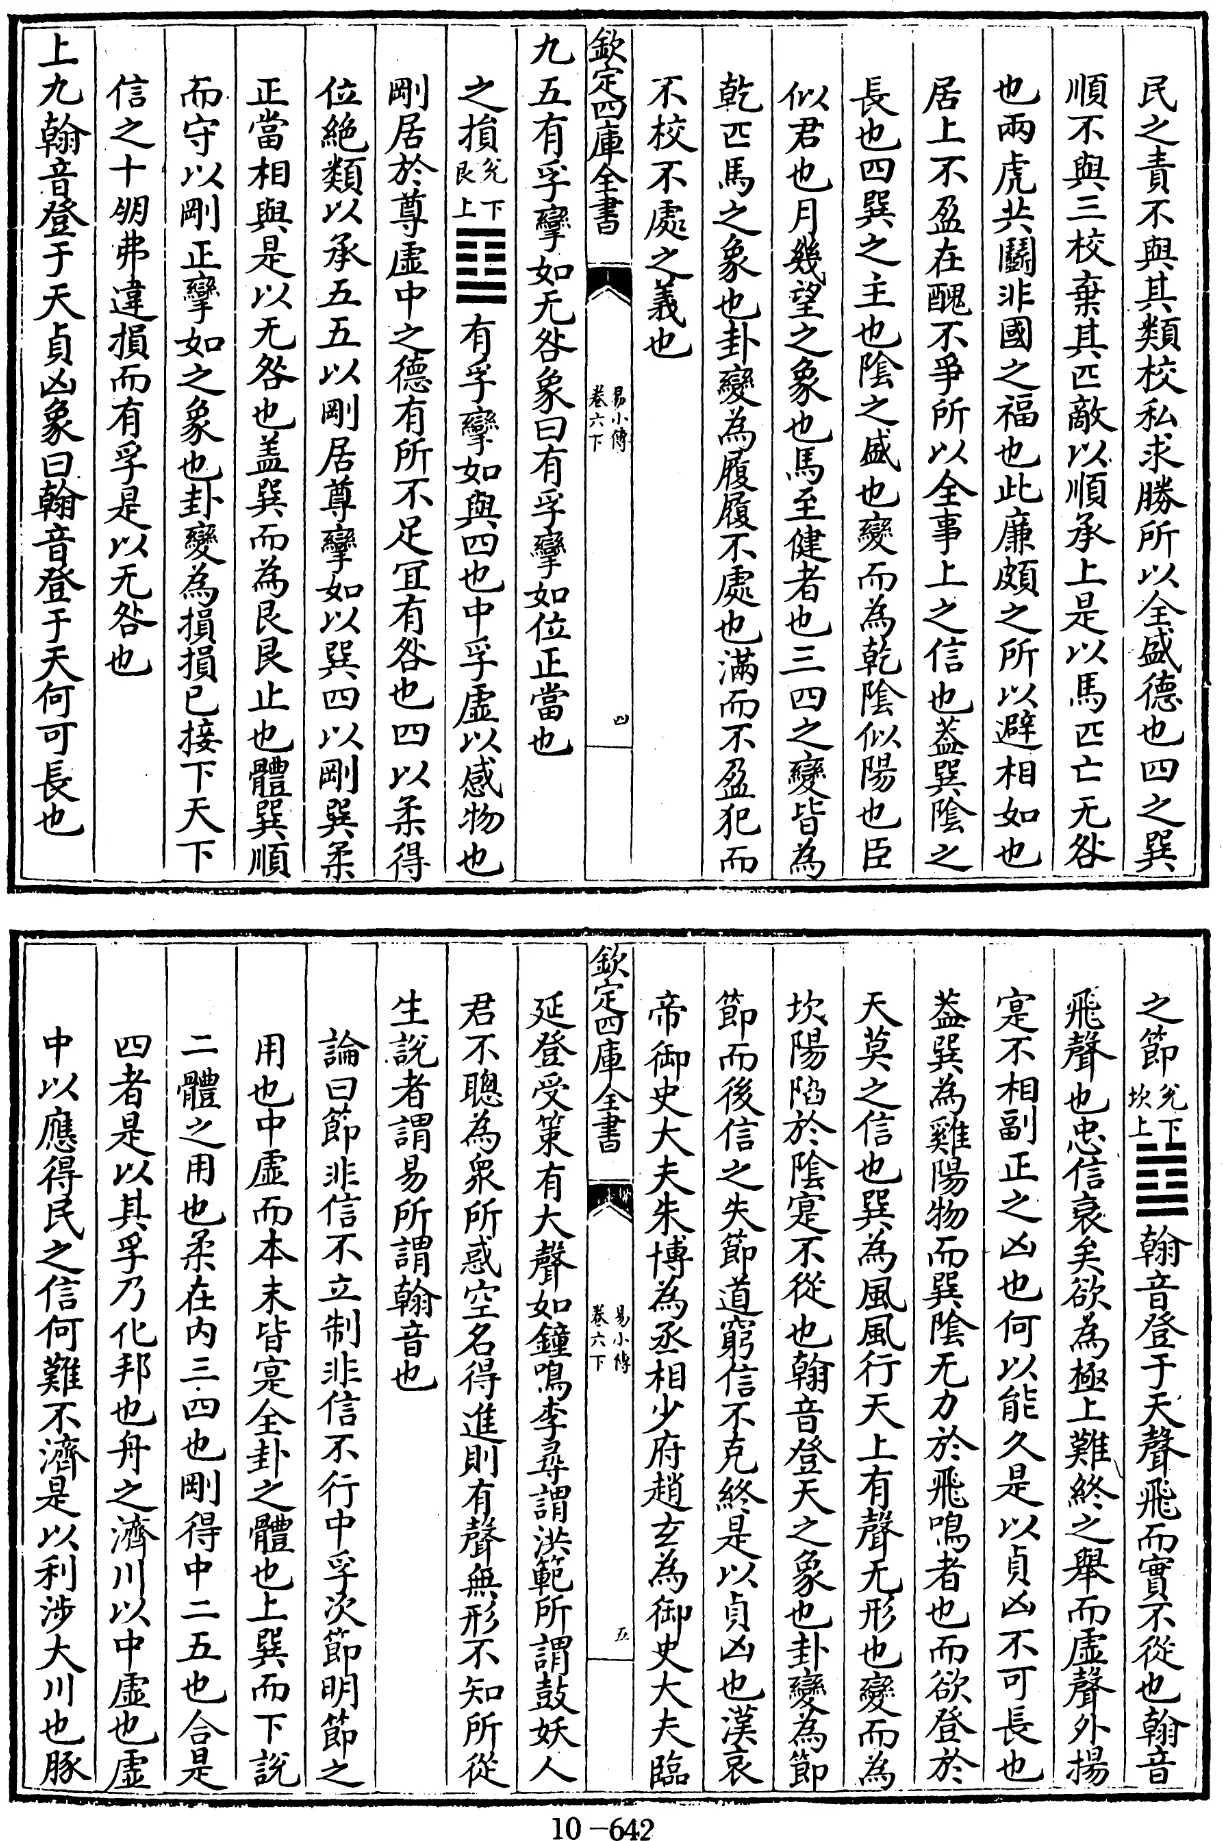 民之責不與其類校私求勝所以全盛德也四之巽
順不與三校棄其匹敵以順承上是以馬匹亡无咎
也兩虎共鬭非國之福也此廉頗之所以避相如也
居上不盈在醜不爭所以全事上之信也葢巽隂之
長也四巽之主也隂之盛也變而為乾隂似陽也臣
似君也月幾望之象也馬至健者也三四之變皆為
乾匹馬之象也卦變為履履不處也滿而不盈犯而
不校不處之義也
欽定四庫全書
易小傳
卷六下
四
九五有孚攣如无咎象曰有孚攣如位正當也
之損
兊下
艮上
有孚攣如與四也中孚虛以感物也
剛居於尊虛中之德有所不足宜有咎也四以柔得
位絶類以承五五以剛居尊攣如以巽四以剛巽柔
正當相與是以无咎也盖巽而為艮艮止也體巽順
而守以剛正攣如之象也卦變為損損已接下天下
信之十朋弗違損而有孚是以无咎也
上九翰音登于天貞凶象曰翰音登于天何可長也
之節
兊下
坎上
翰音登于天聲飛而實不從也翰音
飛聲也忠信衰矣欲為極上難終之舉而虛聲外揚
寔不相副正之凶也何以能久是以貞凶不可長也
葢巽為雞陽物而巽隂无力於飛鳴者也而欲登於
天莫之信也巽為風風行天上有聲无形也變而為
坎陽陷於隂寔不從也翰音登天之象也卦變為節
節而後信之失節道窮信不克終是以貞凶也漢哀
帝御史大夫朱博為丞相少府趙玄為御史大夫臨
欽定四庫全書
易小傳
卷六下
五
延登受策有大聲如鐘鳴李尋謂洪範所謂鼓妖人
君不聰為衆所惑空名得進則有聲無形不知所從
生說者謂易所謂翰音也
論曰節非信不立制非信不行中孚次節明節之
用也中虛而本末皆寔全卦之體也上巽而下說
二體之用也柔在内三四也剛得中二五也合是
四者是以其孚乃化邦也舟之濟川以中虛也虛
中以應得民之信何難不濟是以利涉大川也豚
10-642